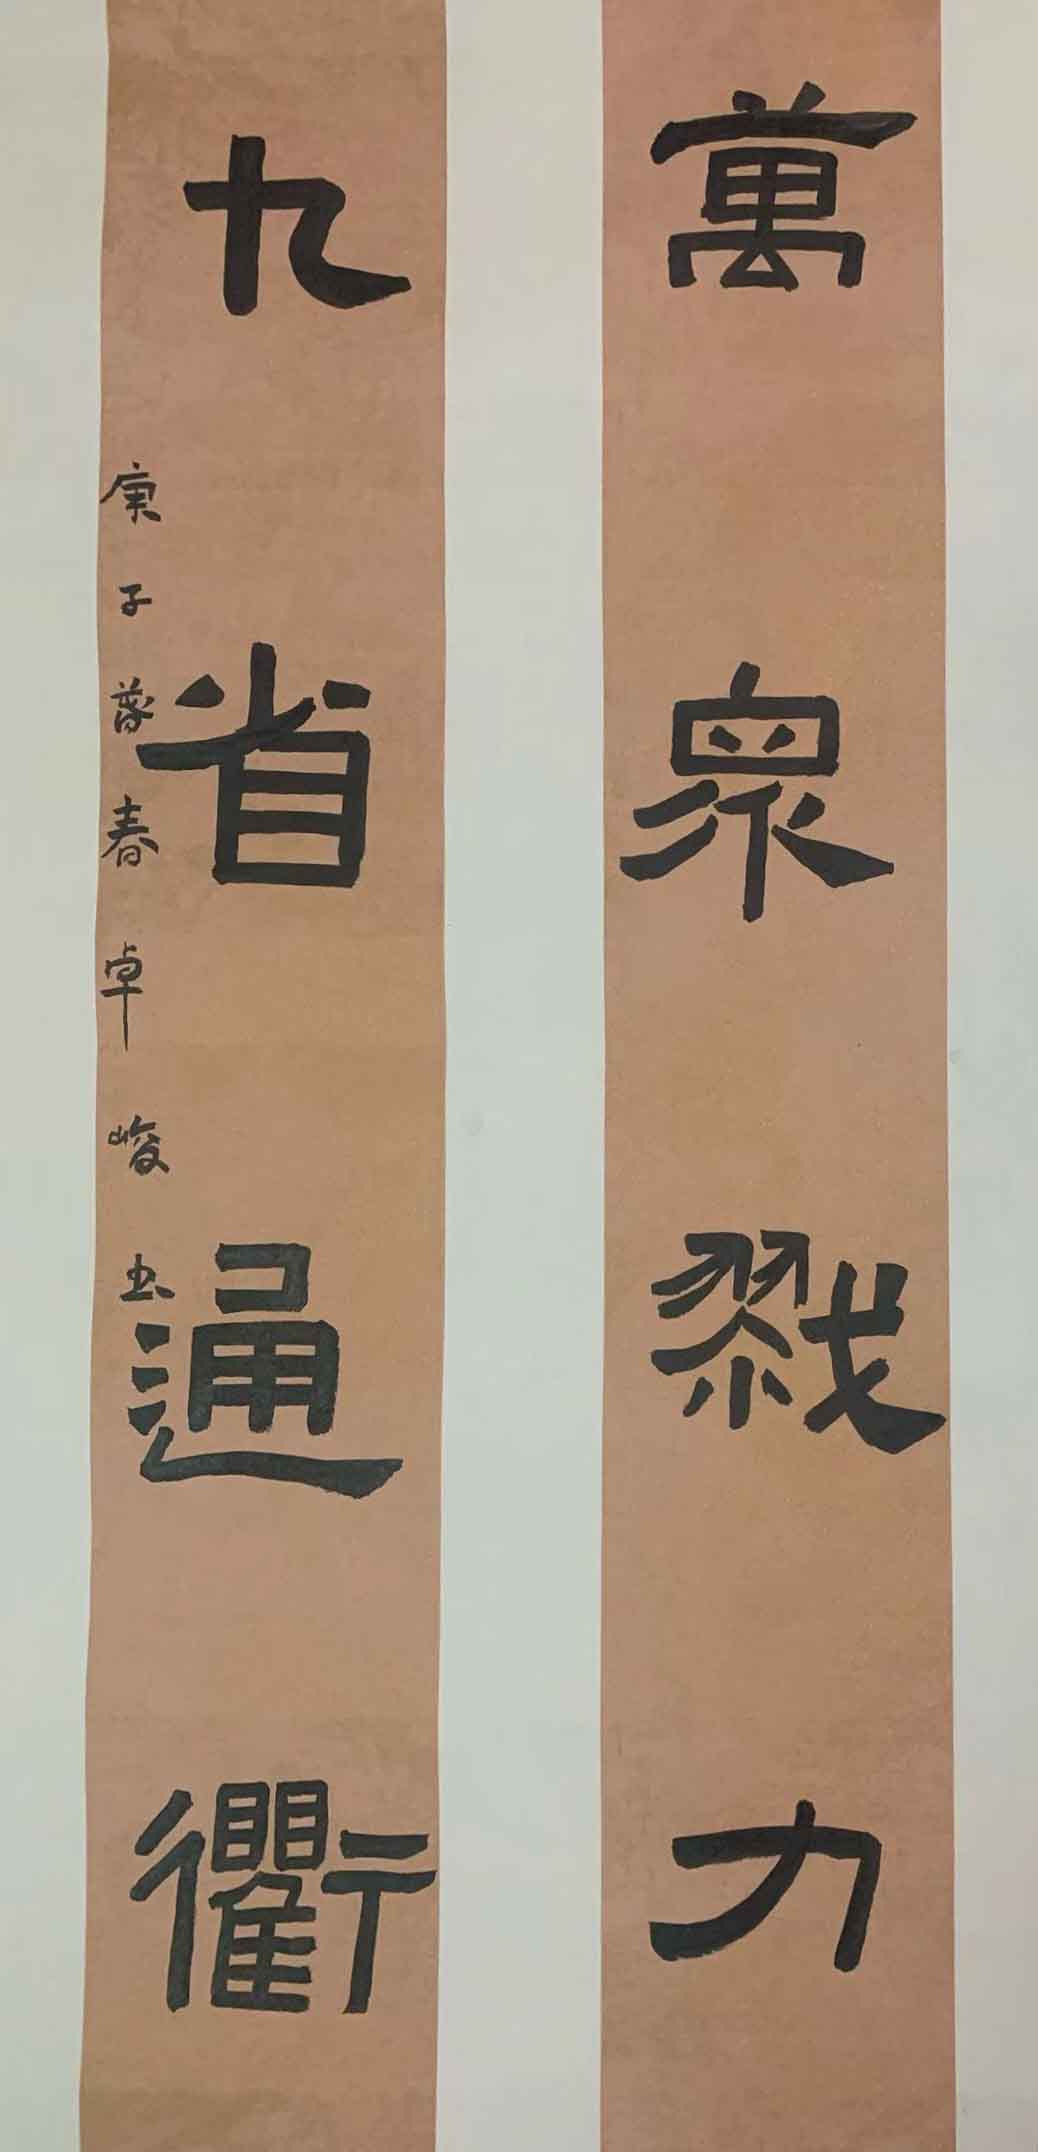 萬眾戮力
九省通衢
庚子暮春卓峻书